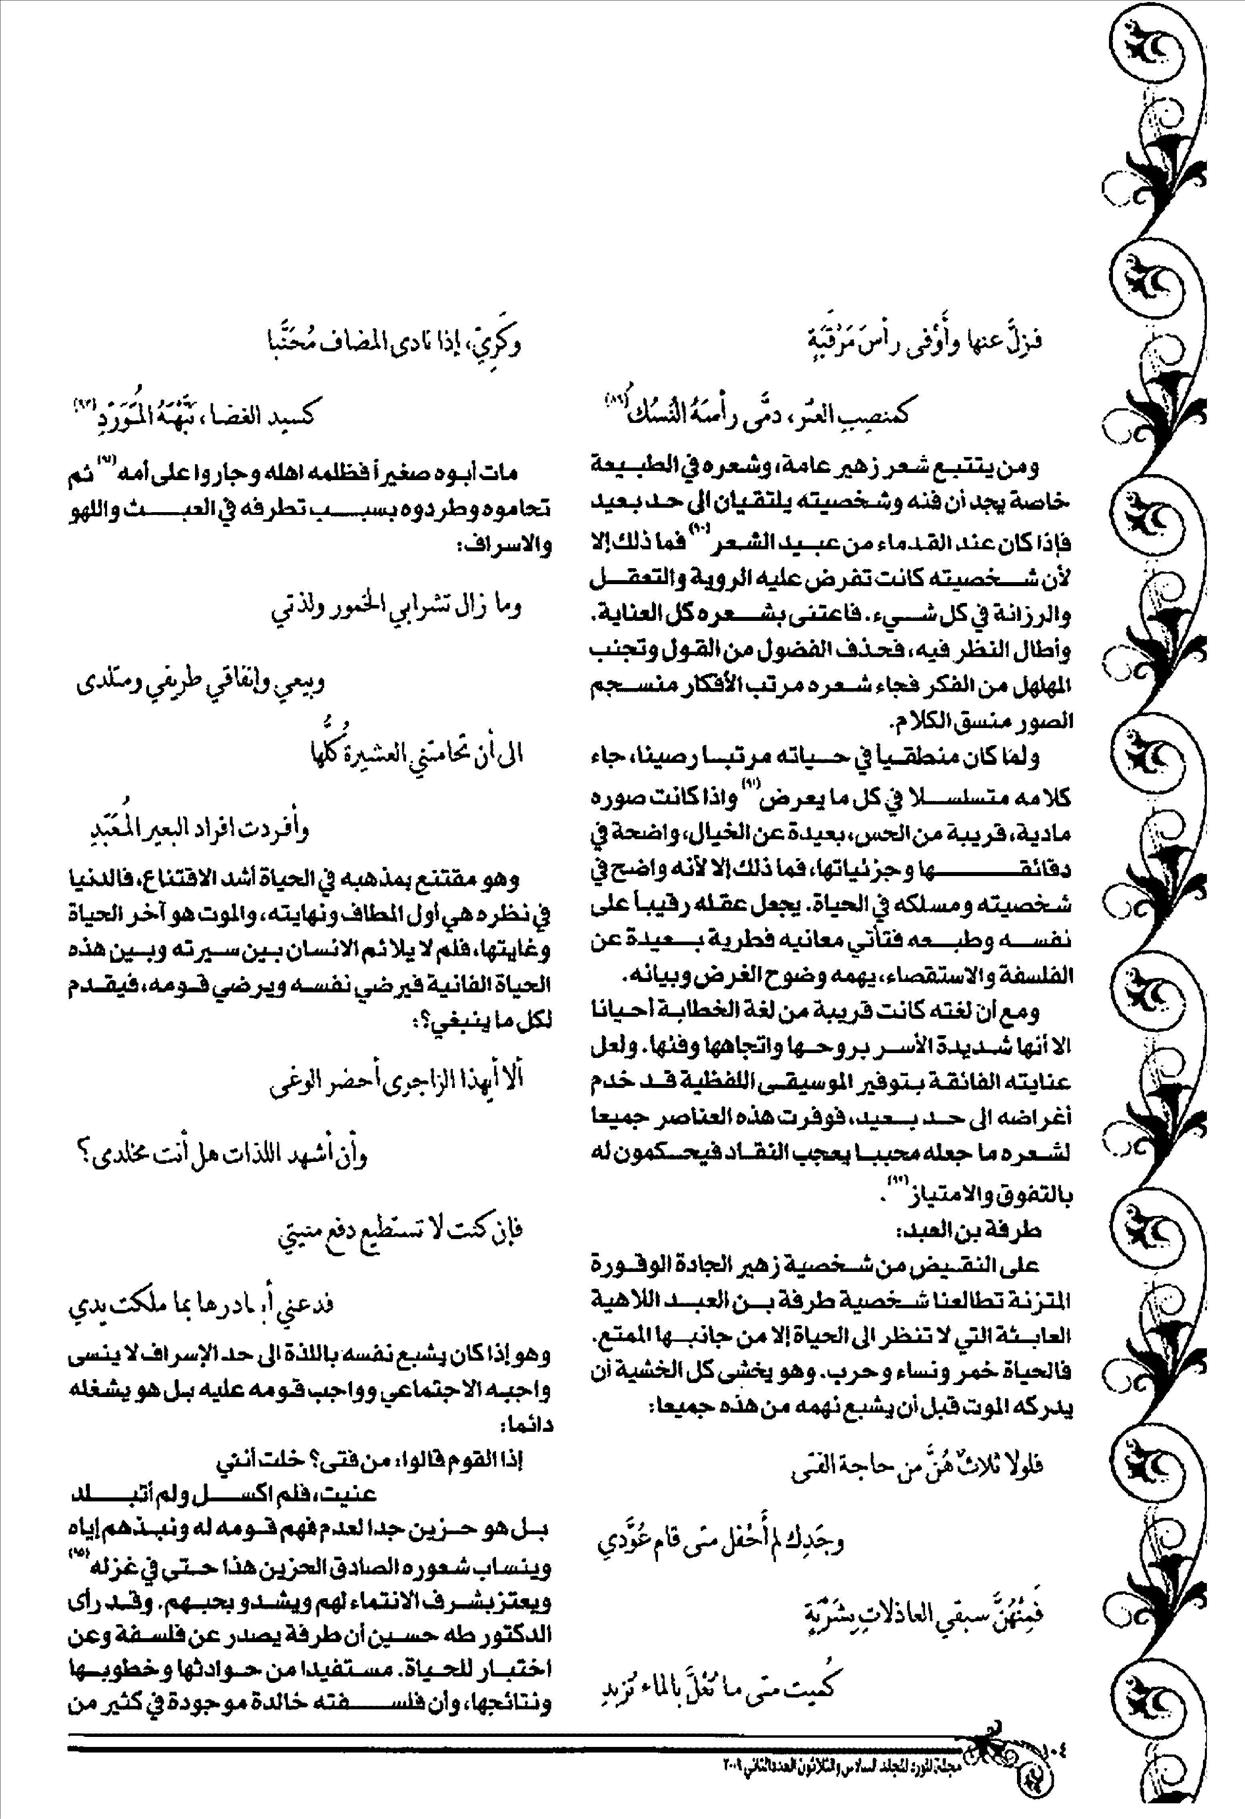 فزلَّ عنها وأَوْفى رأسَ مَرْقَبَةٍ
كمنصِبِ العتر، دمَّى رأسَهُ النُسُكُ (٨٩)
ومن يتتبع شعر زهير عامة، وشعره في الطبيعة
خاصة يجد أن فنه وشخصيته يلتقيان الى حد بعيد
فإذا كان عند القدماء من عبيد الشعر (٩٠) فما ذلك إلا
لأن شخصيته كانت تفرض عليه الروية والتعقل
والرزانة في كل شيء. فاعتنى بشعره كل العناية.
وأطال النظر فيه، فحذف الفضول من القول وتجنب
المهلهل من الفكر فجاء شعره مرتب الأفكار منسجم
الصور منسق الكلام.
ولما كان منطقياً في حياته مرتبا رصينا، جاء
كلامه متسلسلا في كل ما يعرض (٩١) واذا كانت صوره
مادية، قريبة من الحس، بعيدة عن الخيال، واضحة في
دقائقها وجزئياتها، فما ذلك إلا لأنه واضح في
شخصيته ومسلكه في الحياة. يجعل عقله رقيباً على
نفسه وطبعه فتأتي معانيه فطرية بعيدة عن
الفلسفة والاستقصاء، يهمه وضوح الغرض وبيانه.
ومع أن لغته كانت قريبة من لغة الخطابة أحيانا
الا أنها شديدة الأسر بروحها واتجاهها وفنها. ولعل
عنايته الفائقة بتوفير الموسيقى اللفظية قد خدم
أغراضه الى حد بعيد، فوفرت هذه العناصر جميعا
لشعره ما جعله محببا يعجب النقاد فيحكمون له
بالتفوق والامتياز (٩٢).
طرفة بن العبد:
على النقيض من شخصية زهير الجادة الوقورة
المتزنة تطالعنا شخصية طرفة بن العبد اللاهية
العابثة التي لا تنظر الى الحياة إلا من جانبها الممتع.
فالحياة خمر ونساء وحرب. وهو يخشى كل الخشية أن
يدركه الموت قبل أن يشبع نهمه من هذه جميعا:
فلولا ثلاثٌ هُنَّ من حاجة الفتى
وجَدِكَ لم أَحْفل متى قام عُوَّدي
فَمِنْهُنَّ سبقي العاذلاتِ بِشَرْبَةٍ
كُميت متى ما تُعْلَ بالماء تُزبِدِ
وكَرِيّ، إذا نادى المضاف مُحَنَّبا
كسيد الغضا، نَبَّهْتَهُ المُتَوَرِّدِ (٩٣)
مات أبوه صغيراً فظلمه اهله وجاروا على أمه (٩٤) ثم
تحاموه وطردوه بسبب تطرفه في العبث واللهو
والاسراف:
وما زال تشرابي الخمور ولذتي
وبيعي وإنفاقي طريفي ومتلدى
الى أن تحامتني العشيرةُ كُلُّها
وأفردت افراد البعير المُعَبَّدِ
وهو مقتنع بمذهبه في الحياة أشد الاقتناع، فالدنيا
في نظره هي أول المطاف ونهايته، والموت هو آخر الحياة
وغايتها، فلم لا يلائم الانسان بين سيرته وبين هذه
الحياة الفانية فيرضي نفسه ويرضي قومه، فيقدم
لكل ما ينبغي؟:
ألا أيهذا الزاجرى أحضر الوغى
وأن أشهد اللذات هل أنت مخلدى؟
فإن كنت لا تستطيع دفع منيتي
فدعني أبادرها بما ملكت يدي
وهو إذا كان يشبع نفسه باللذة الى حد الإسراف لا ينسى
واجبه الاجتماعي وواجب قومه عليه بل هو يشغله
دائما:
إذا القوم قالوا: من فتى؟ خلت أنني
عنيت، فلم اكسل ولم أتبلد
بل هو حزين جدا لعدم فهم قومه له ونبذهم إياه
وينساب شعوره الصادق الحزين هذا حتى في غزله (٩٥)
ويعتز بشرف الانتماء لهم ويشدو بحبهم. وقد رأى
الدكتور طه حسين أن طرفة يصدر عن فلسفة وعن
اختبار للحياة. مستفيدا من حوادثها وخطوبها
ونتائجها، وأن فلسفته خالدة موجودة في كثير من
١٠٤
مجلة المورد المجلد السادس والثلاثون العدد الثاني ٢٠٠٩